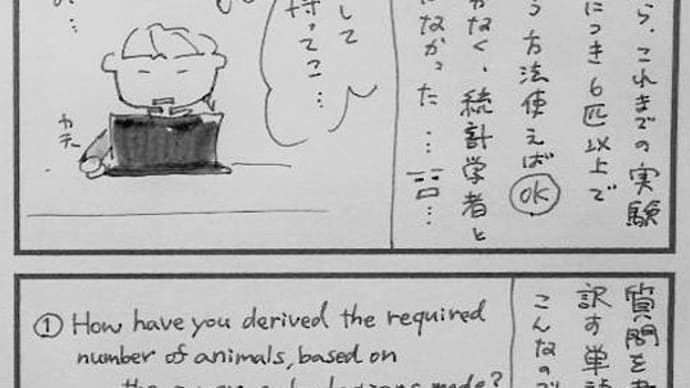 ら、これまでの実験
につき6匹以上で
う方法使えば OK
かなく、統計学者と
なかった…
して
持ってこ…
カチ
質問を
訳す単
こんなので
① How have you derived the required
number of animals, based on
made?